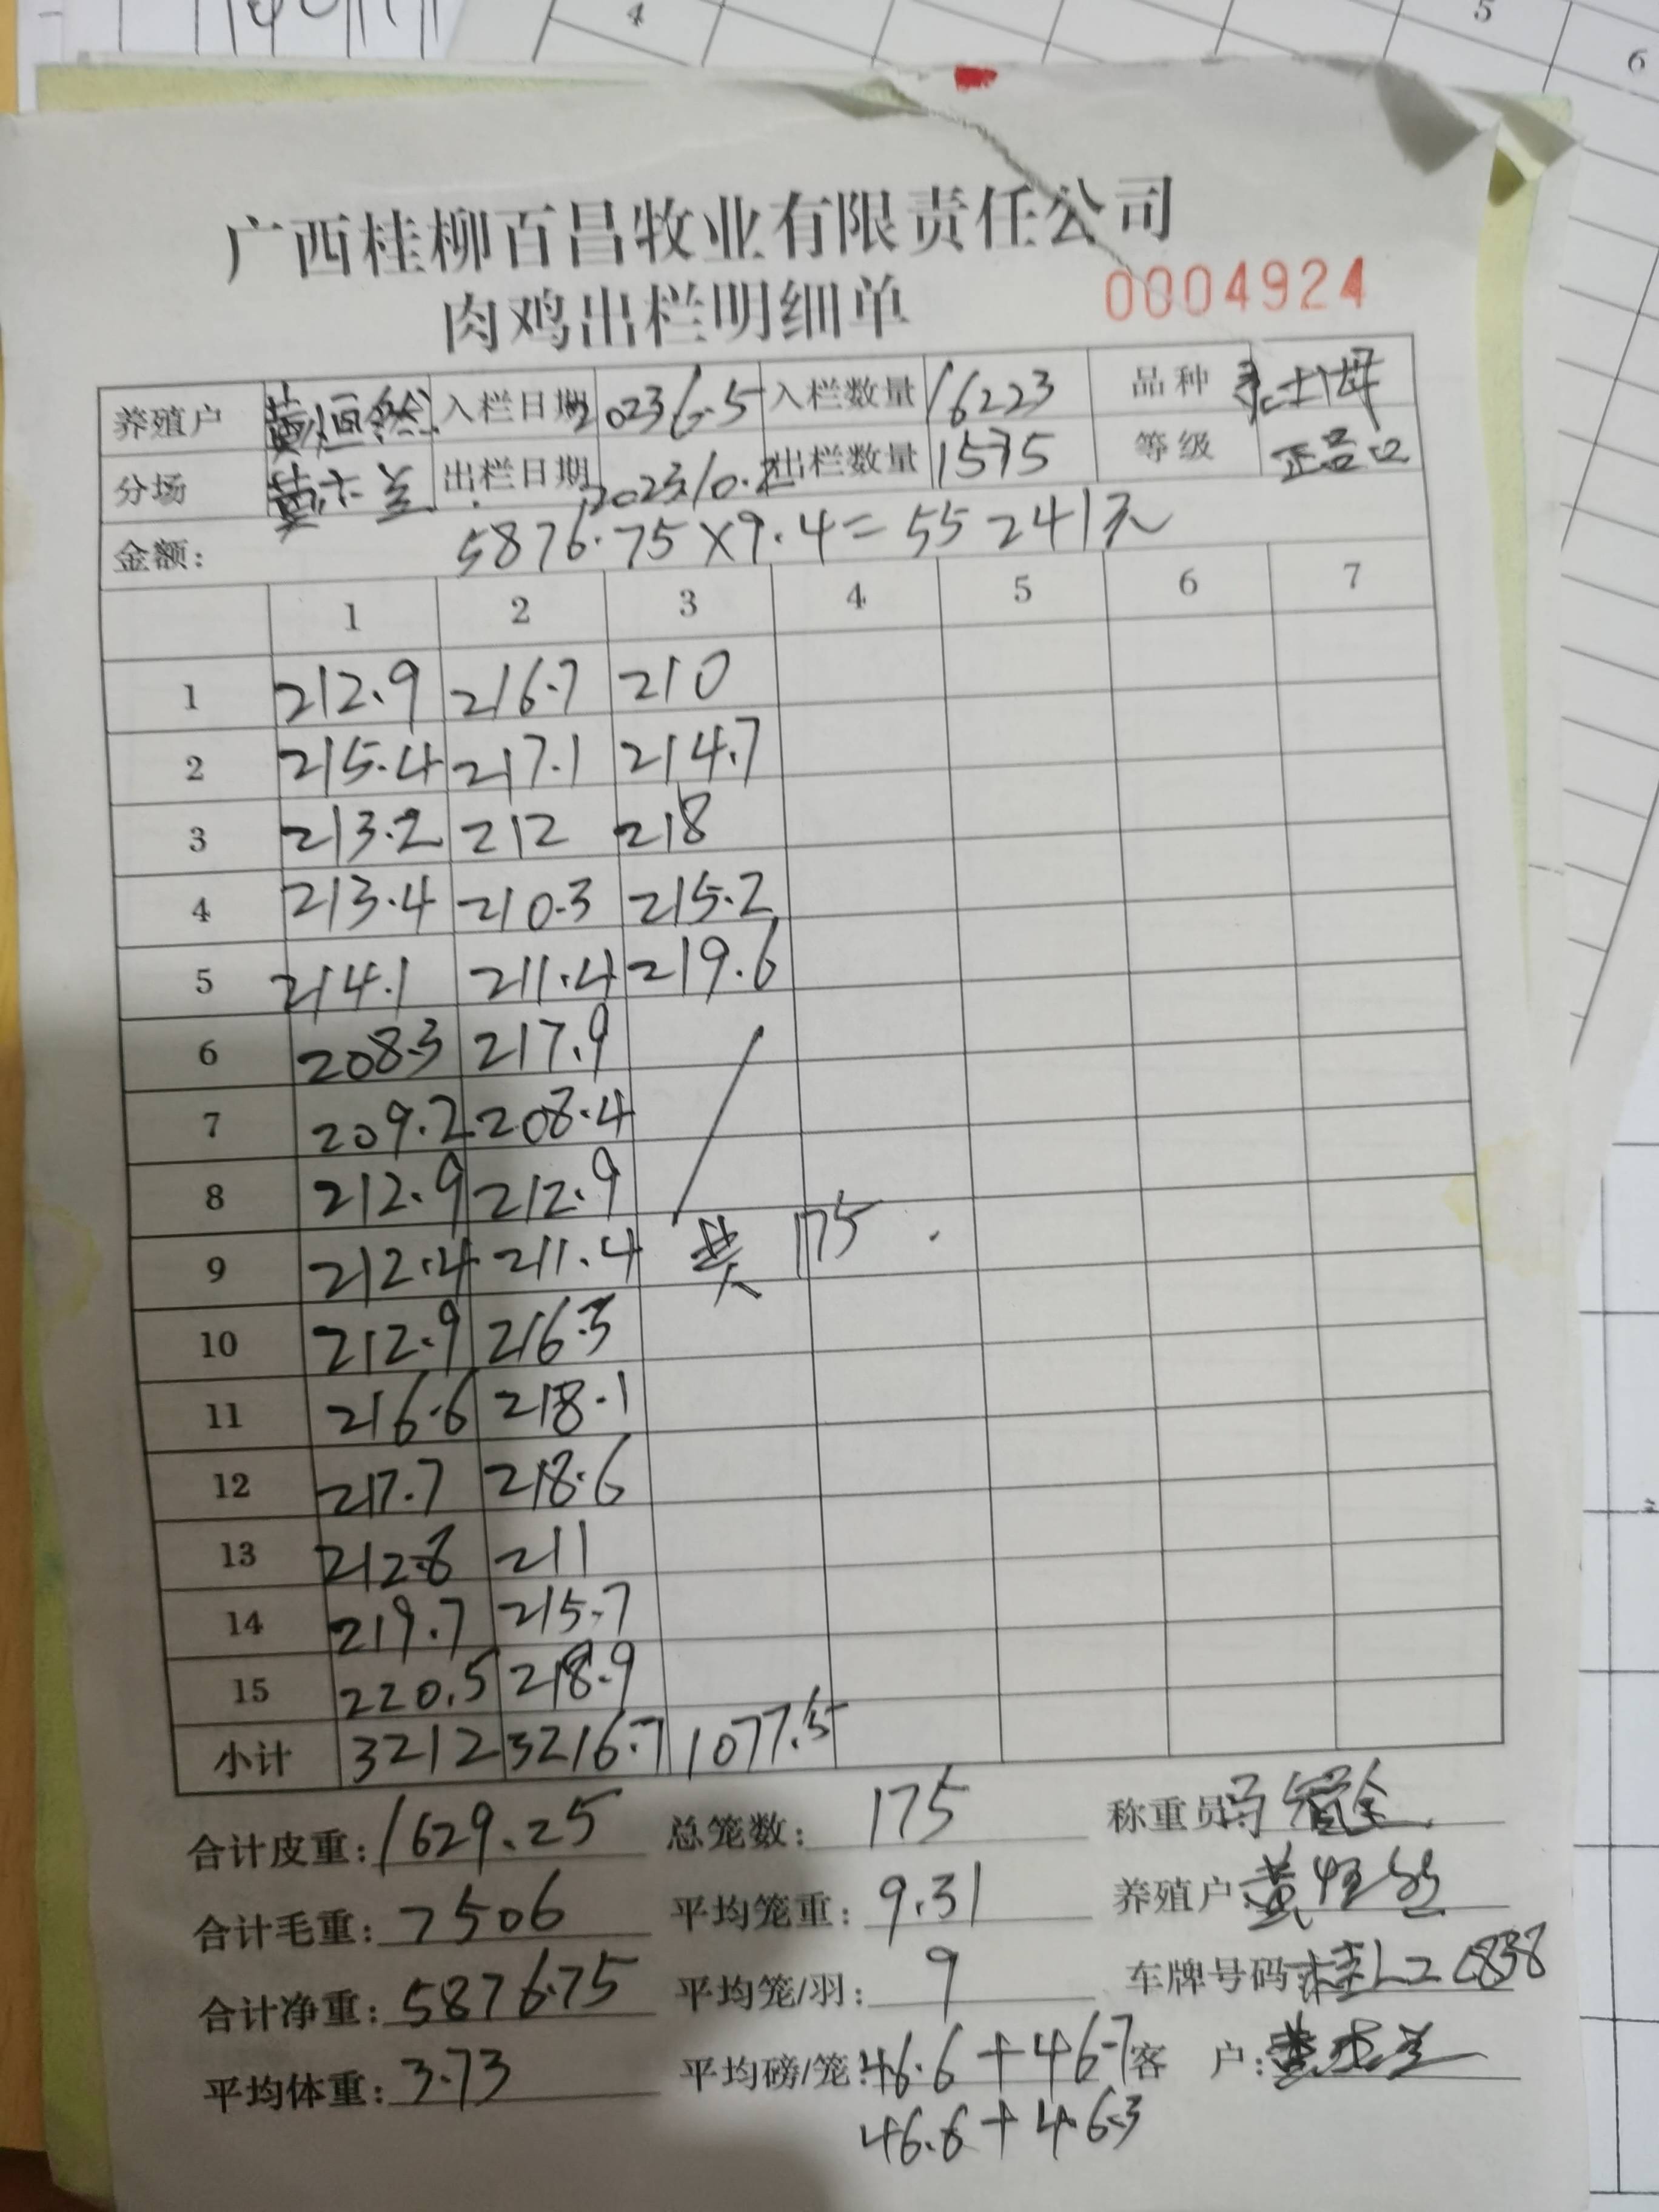 广西桂柳百昌牧业有限责任公司
肉鸡出栏明细单 0004924
养殖户 黄恒 入栏日期 2023.6.5 入栏数量 16223 品种 土
分场 出栏日期 2023.10.2 出栏数量 1575 等级 正品
金额: 5876.75×9.4=55241元
1 2 3 4 5 6 7
1 212.9 216.7 210
2 215.4 217.1 214.7
3 213.2 212 218
4 213.4 210.3 215.2
5 214.1 211.4 219.6
6 208.3 217.9
7 209.2 208.4
8 212.9 212.9
9 212.4 211.4 共 175
10 212.9 216.3
11 216.6 218.1
12 217.7 218.6
13 212.8 211
14 219.7 215.7
15 220.5 218.9
小计 3212 3216.7 1077.5
合计皮重: 1629.25 总笼数: 175 称重员:
合计毛重: 7506 平均笼重: 9.31 养殖户: 黄恒
合计净重: 5876.75 平均笼/羽: 9 车牌号码: 桂L
平均体重: 3.73 平均磅/笼: 46.6+46.7 客 户:
46.6+46.3
4 5
6